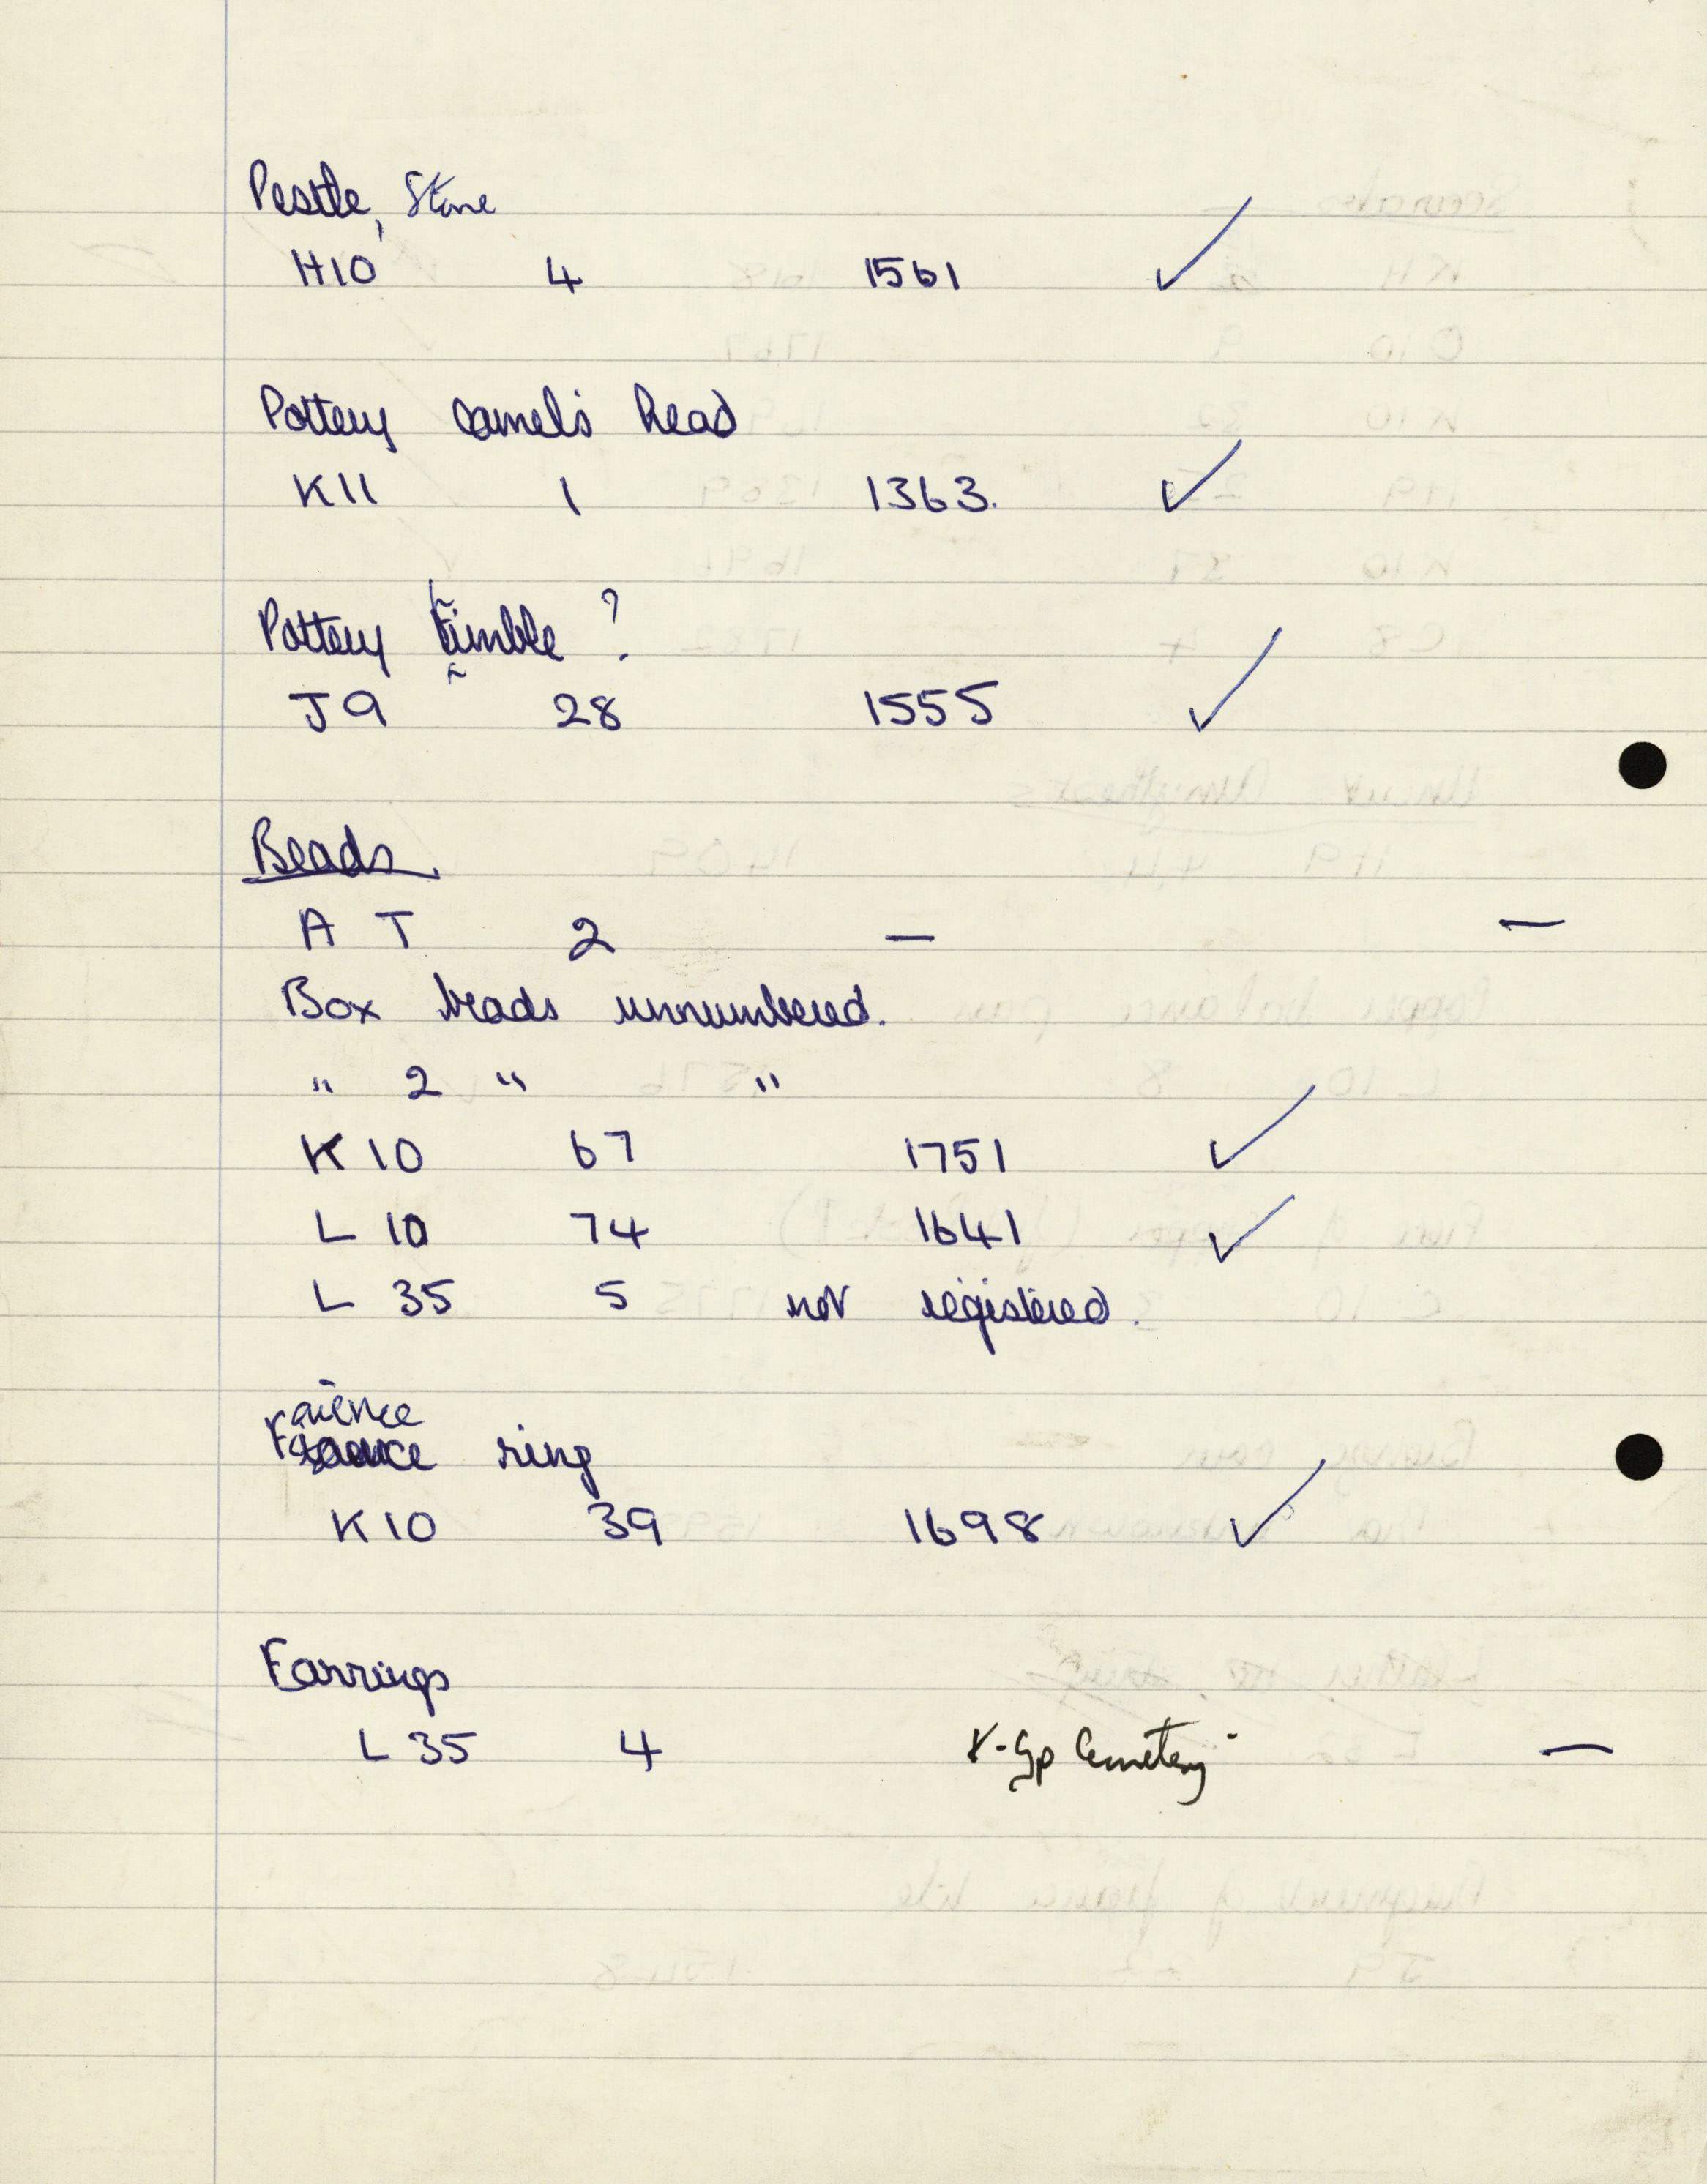 Pestle, Stone
H10 4 1561 ✓
Pottery camel's head
K11 1 1363. ✓
Pottery ?
J9 28 1555 ✓
Beads.
A T 2 — —
Box beads unnumbered.
" 2 " "
K10 67 1751 ✓
L 10 74 1641 ✓
L 35 5 not registered.
Faience
ring
K10 39 1698 ✓
Earrings
L 35 4 X-Gp Cemetery —